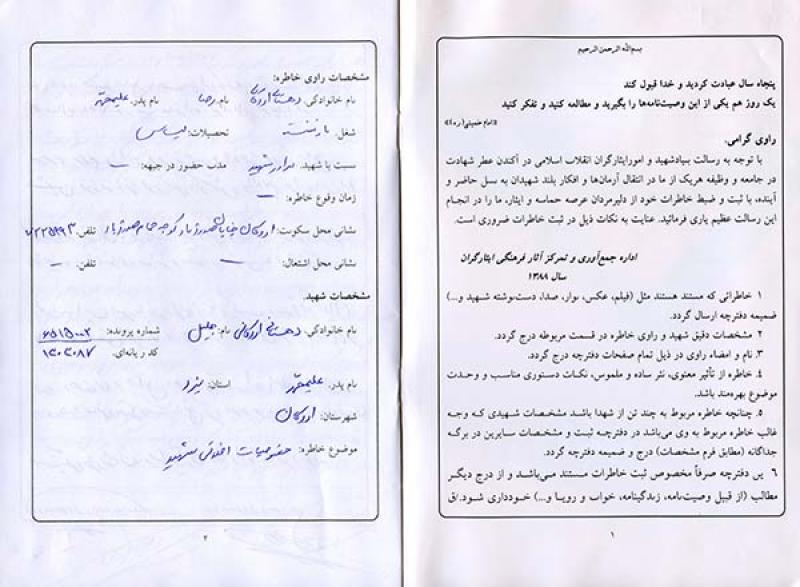 بسم‌الله الرحمن الرحیم
پنجاه سال عبادت کردید و خدا قبول کند
یک روز هم یکی از این وصیت‌نامه‌ها را بگیرید و مطالعه کنید و تفکر کنید
«امام خمینی(ره)»
راوی گرامی.
با توجه به رسالت بنیادشهید و امورایثارگران انقلاب اسلامی در آکندن عطر شهادت
در جامعه و وظیفه هریک از ما در انتقال آرمان‌ها و افکار بلند شهیدان به نسل حاضر و
آینده، با ثبت و ضبط خاطرات خود از دلیرمردان عرصه حماسه و ایثار، ما را در انجام
این رسالت عظیم یاری فرمائید. عنایت به نکات ذیل در ثبت خاطرات ضروری است.
اداره جمع‌آوری و تمرکز آثار فرهنگی ایثارگران
سال ۱۳۸۸
۱ خاطراتی که مستند هستند مثل (فیلم، عکس، نوار، صدا، دست‌نوشته شهید و...)
ضمیمه دفترچه ارسال گردد.
۲ مشخصات دقیق شهید و راوی خاطره در قسمت مربوطه درج گردد.
۳ نام و امضاء راوی در ذیل تمام صفحات دفترچه درج گردد.
۴ خاطره از تأثیر معنوی، نثر ساده و ملموس، نکات دستوری مناسب و وحدت
موضوع بهره‌مند باشد.
۵ چنانچه خاطره مربوط به چند تن از شهدا باشد مشخصات شهیدی که وجه
غالب خاطره مربوط به وی می‌باشد در دفترچه ثبت و مشخصات سایرین در برگه
جداگانه (مطابق فرم مشخصات) درج و ضمیمه دفترچه گردد.
۶ این دفترچه صرفاً مخصوص ثبت خاطرات مستند می‌باشد و از درج دیگر
مطالب (از قبیل وصیت‌نامه، زندگینامه، خواب و رویا و...) خودداری شود./ق
۱
مشخصات راوی خاطره:
نام خانوادگی: دهستانی اردکانی نام: رضا نام پدر: علیمحمد
شغل: بازنشسته تحصیلات: لیسانس
نسبت با شهید: برادر شهید مدت حضور در جبهه: –
زمان وقوع خاطره: –
نشانی محل سکونت: اردکان خیابان کوچه تلفن: ۷۲۲۵۹۹۳
نشانی محل اشتغال: – تلفن: –
مشخصات شهید.
نام خانوادگی: دهستانی اردکانی نام: جلیل شماره پرونده: ۶۵۱۵۰۰۲
کد رایانه‌ای: ۱۲۰۲۰۸۷
نام پدر: علیمحمد استان: یزد
شهرستان: اردکان
موضوع خاطره: خصوصیات اخلاقی شهید
۲